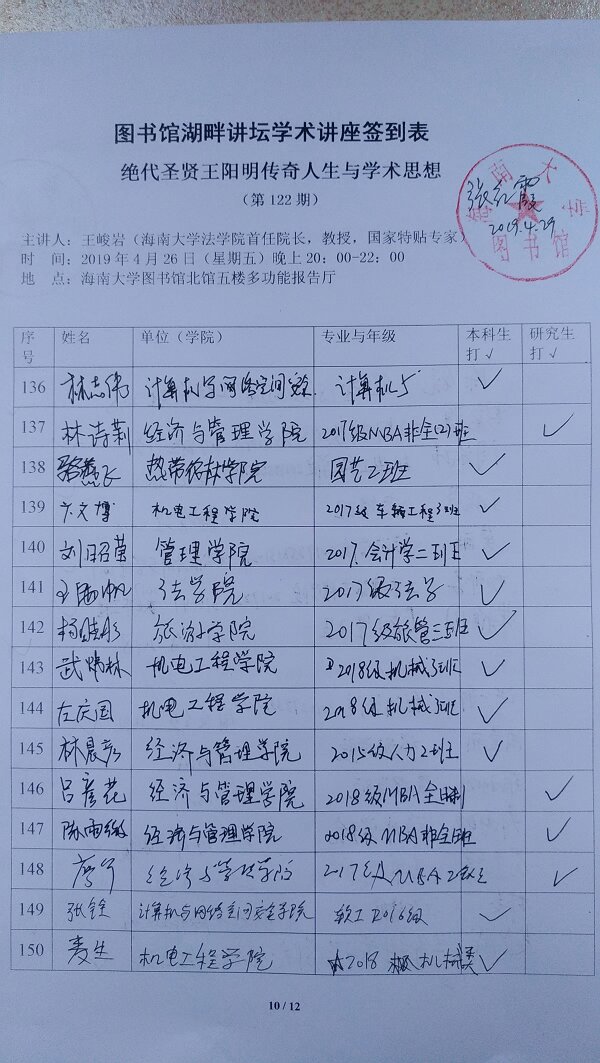 图书馆湖畔讲坛学术讲座签到表
绝代圣贤王阳明传奇人生与学术思想
（第 122 期）
海南大学
图书馆
张红霞
2019.4.29
主讲人：王峻岩（海南大学法学院首任院长，教授，国家特贴专家）
时　间：2019 年 4 月 26 日（星期五）晚上 20：00-22：00
地　点：海南大学图书馆北馆五楼多功能报告厅
序号 姓名 单位（学院） 专业与年级 本科生打√ 研究生打√
136 林志伟 计算机与网络空间安全 计算机 √
137 林诗莉 经济与管理学院 2017级MBA非全(2)班 √
138 骆燕飞 热带作物学院 园艺2班 √
139 卞文博 机电工程学院 2017级车辆工程3班 √
140 刘昭莹 管理学院 2017.会计学二班 √
141 法学院 2017级法学 √
142 杨晓彤 旅游学院 2017级旅管三班 √
143 武炜林 机电工程学院 2018级机械3班 √
144 左庆国 机电工程学院 2018级机械3班 √
145 林晨彦 经济与管理学院 2015级人力2班 √
146 吕彦花 经济与管理学院 2018级MBA全日制 √
147 陈雨微 经济与管理学院 2018级MBA非全班 √
148 经济与管理学院 2017级MBA √
149 张铨 计算机与网络空间安全学院 软工2016级 √
150 麦生 机电工程学院 2018 机械类 √
10 / 12